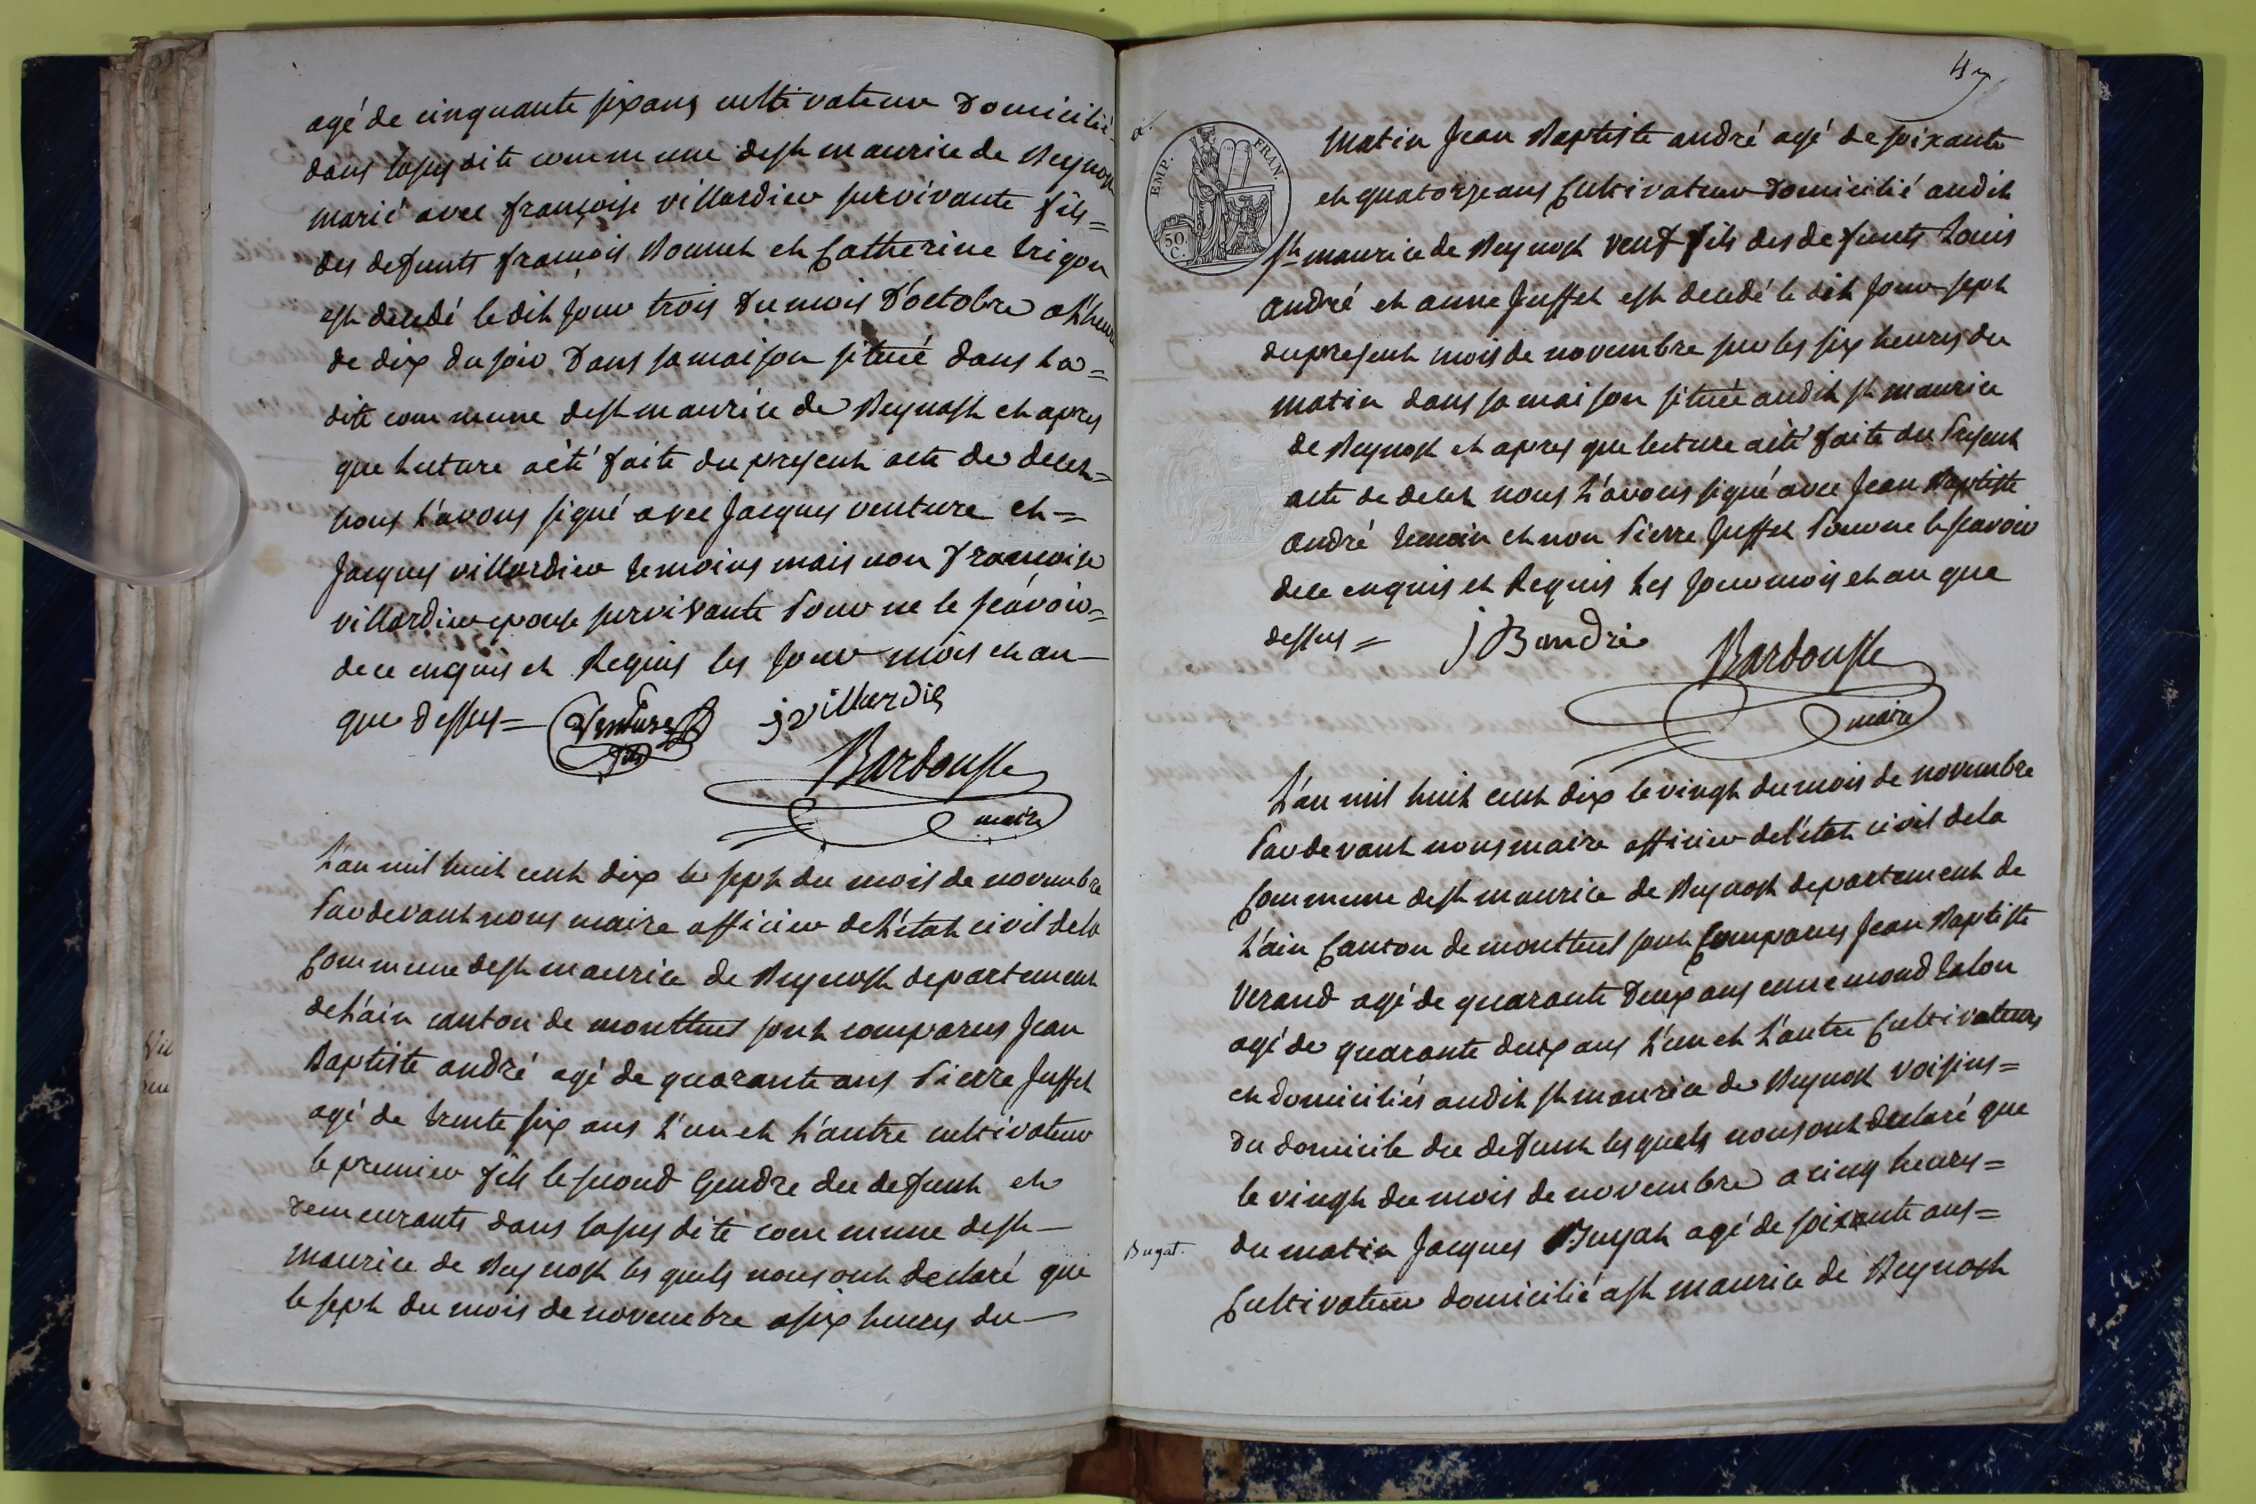 agé de cinquante six ans cultivateur Domicilié
dans la susdite commune de st maurice de Beynost
marié avec françoise villardier survivante fils=
des defunts françois Bonnet et Catherine trigon
est decedé le dit jour trois Du mois D'octobre a l'heure
de dix du soir Dans sa maison situeé dans La=
dite commune de st maurice de Beynost et apres
que lecture a été faite du present acte de deces=
nous L'avons signé avec Jacques venture et=
Jacques villardier temoins mais non françoise
villardier epouse survivante Pour ne le scavoir=
de ce enquis et Requis les Jour mois et an
que dessus= Venture fils jvillardie
Bardousse
maire
L'an mil huit cent dix le sept du mois de novembre
Pardevant nous maire officier de L'état civil de la
Commune de st maurice de Beynost departement
de L'ain canton de montluel sont comparus Jean
Baptiste andré agé de quarante ans Pierre Juffet
agé de trente six ans L'un et L'autre cultivateur
le premier fils le second Gendre du defunt et
demeurants dans la susdite commune de st
maurice de Beynost les quels nous ont declaré que
le sept du mois de novembre a six heures du
47
EMP. FRAN.
50 C.
matin Jean Baptiste andré agé de soixante
et quatorze ans Cultivateur Domicilié audit
st maurice de Beynost veuf fils des defunts Louis
André et anne Juffet est decedé le dit jour sept
du present mois de novembre sur les six heures du
matin dans sa maison situeé audit st maurice
de Beynost et apres que lecture a été faite du Present
acte de deces nous L'avons signé avec Jean Baptiste
andré temoin et non Pierre Juffet Pour ne le scavoir
de ce enquis et Requis Les Jour mois et an que
dessus= JB andré
Bardousse
maire
L'an mil huit cent dix le vingt du mois de novembre
Pardevant nous maire officier de l'état civil de la
Commune de st maurice de Beynost departement de
L'ain Canton de montluel sont Comparus Jean Baptiste
Verand agé de quarante Deux ans ennemond talon
agé de quarante deux ans L'un et L'autre Cultivateurs
et domiciliés audit st maurice de Beynost voisins=
Du domicile du defunt les quels nous ont declaré que
le vingt du mois de novembre a cinq heures=
Bugat.
du matin Jacques Bugat agé de soixante ans=
Cultivateur domicilié a st maurice de Beynost